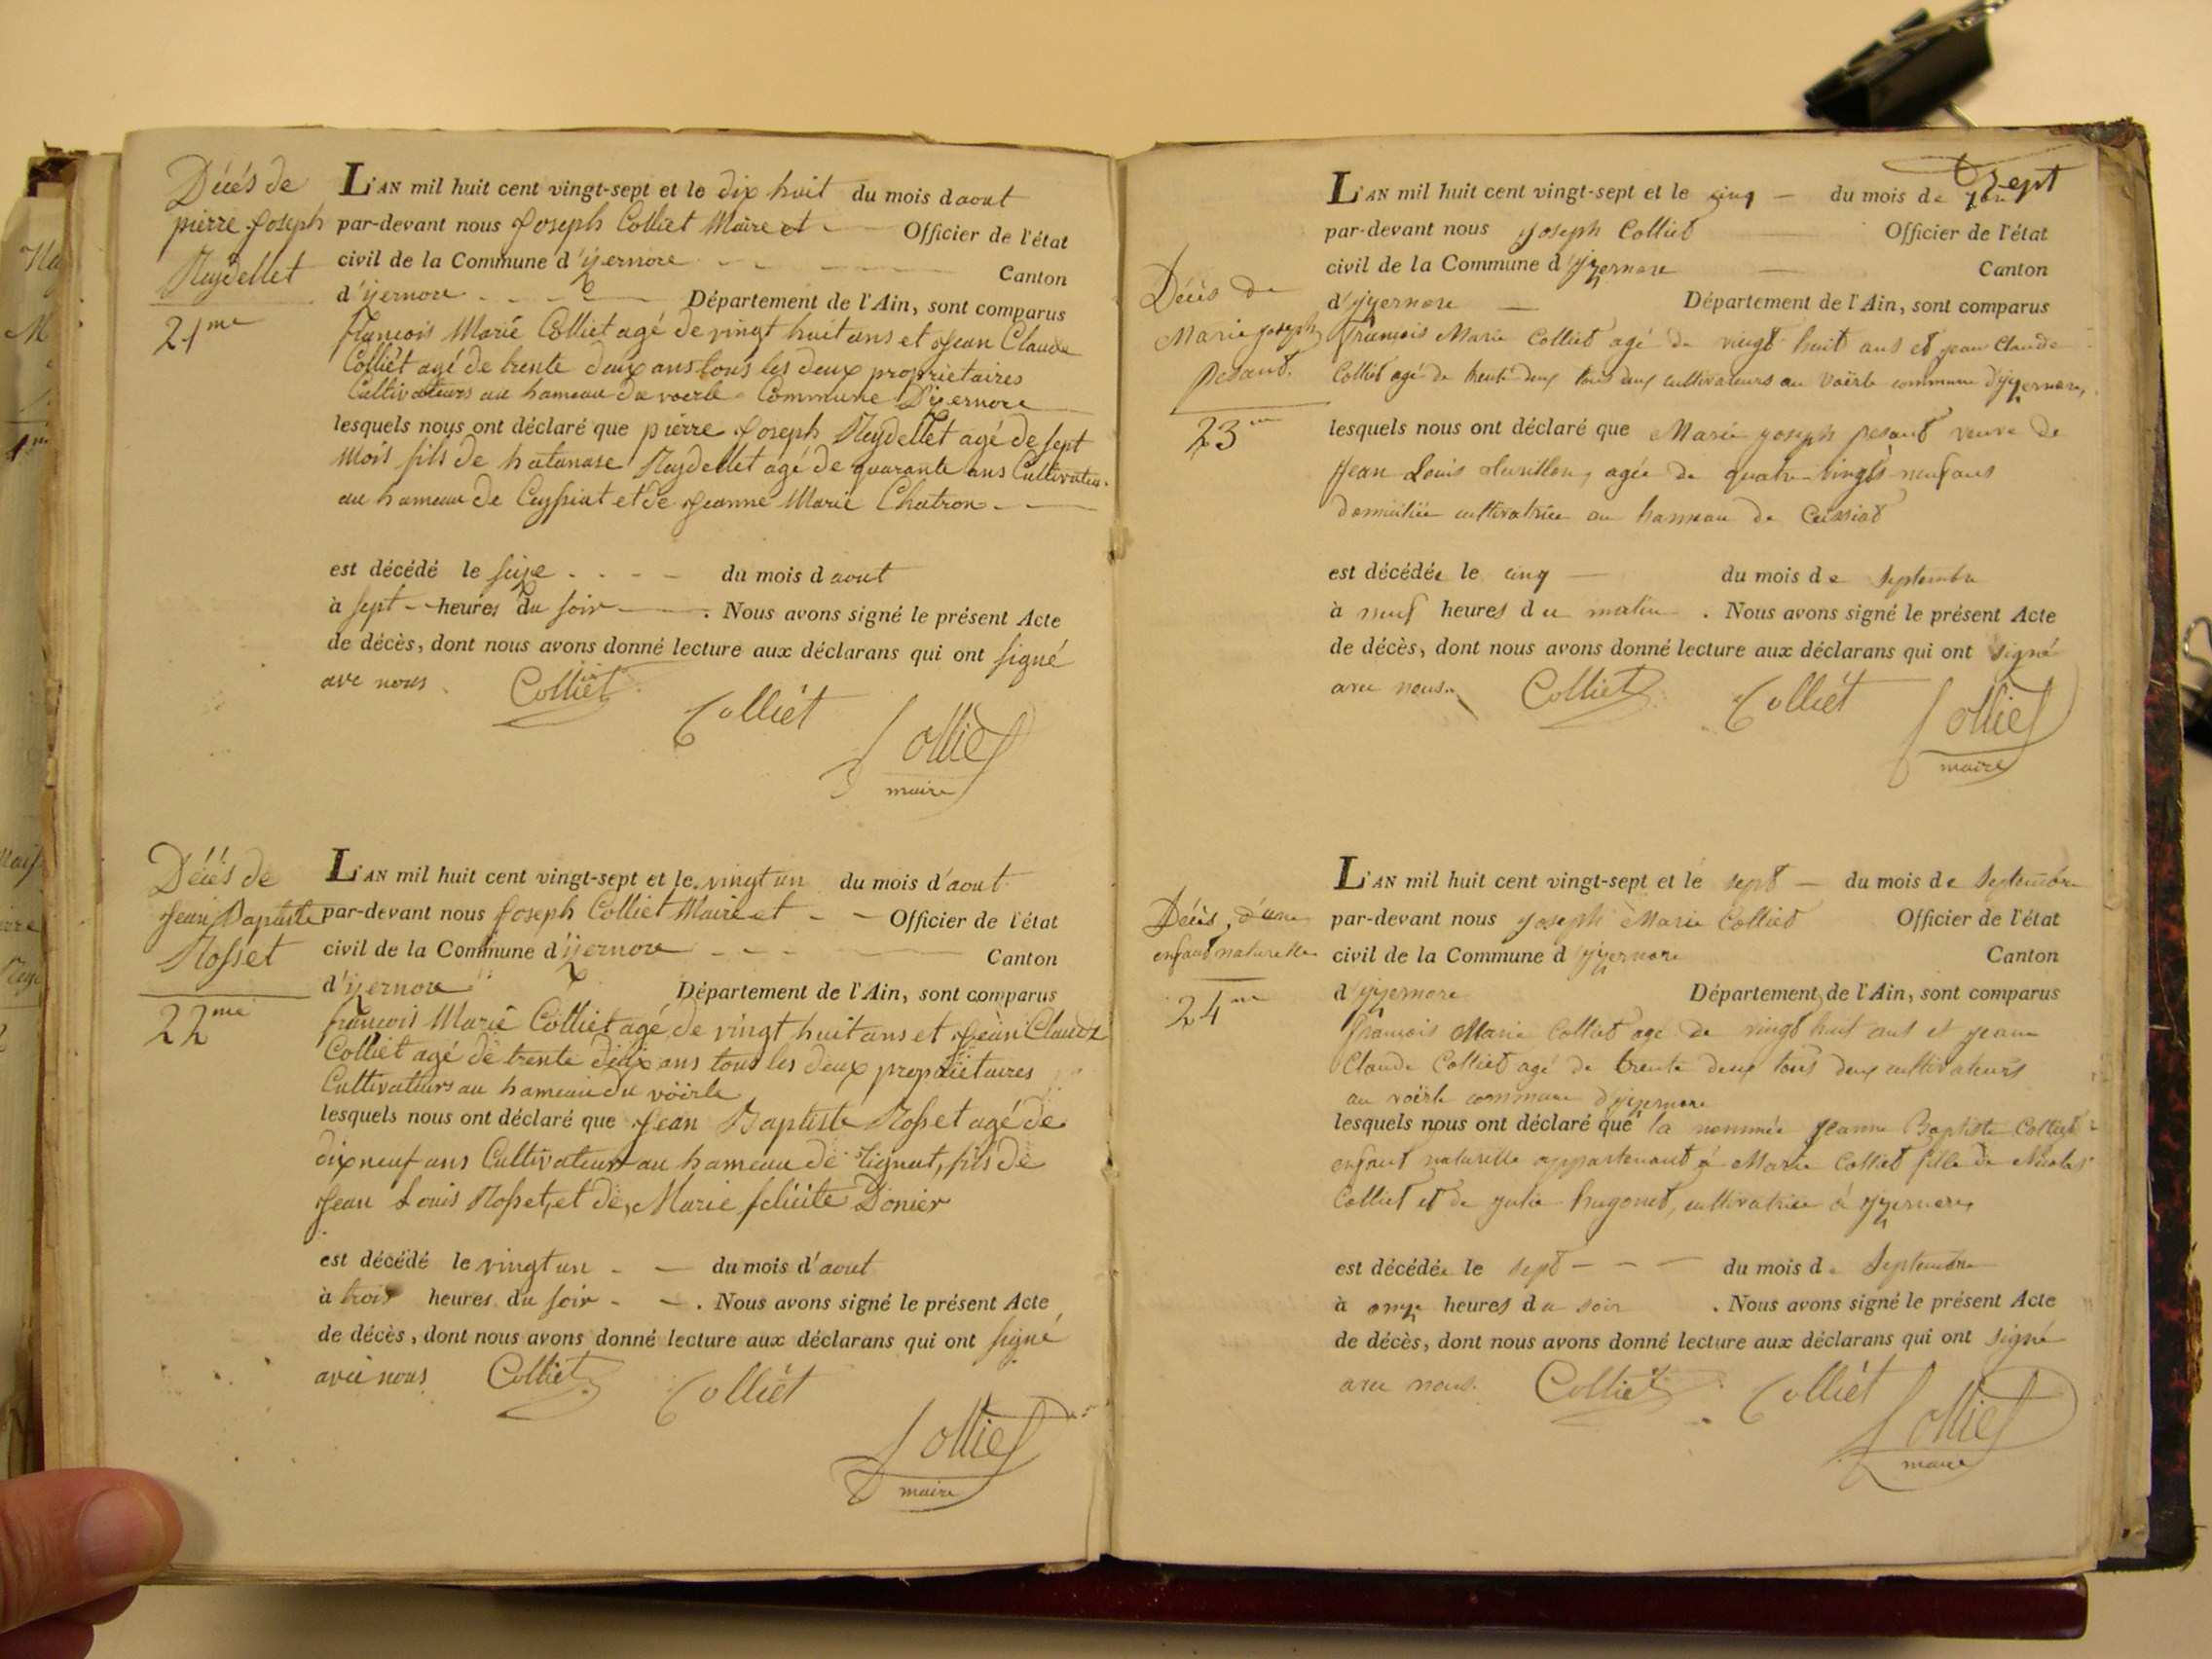 Décés de
pierre Joseph
Reydellet
21me
L'AN mil huit cent vingt-sept et le dix huit du mois d aout
par-devant nous Joseph Colliet Maire et Officier de l'état
civil de la Commune d'yzernore Canton
d'yzernore Département de l'Ain, sont comparus
françois Marie Colliet agé de vingt huit ans et Jean Claude
Colliet agé de trente deux ans tous les deux proprietaires
Cultivateurs au hameau du voerle Commune D'yzernore
lesquels nous ont déclaré que pierre Joseph Reydellet agé de sept
mois fils de hatanase Reydellet agé de quarante ans Cultivateur
au hameau de Ceyssiat et de Jeanne Marie Chatron
est décédé le seize du mois d aout
à sept heures du soir. Nous avons signé le présent Acte
de décès, dont nous avons donné lecture aux déclarans qui ont signé
avc nous Colliet Colliét Colliet
maire
Décés de
Jean Baptiste
Rosset
22me
L'AN mil huit cent vingt-sept et le vingt un du mois d'aout
par-devant nous Joseph Colliet Maire et Officier de l'état
civil de la Commune d'yzernore Canton
d'yzernore Département de l'Ain, sont comparus
françois Marie Colliet agé de vingt huit ans et Jean Claude
Colliet agé de trente deux ans tous les deux propriétaires
Cultivateurs au hameau du voërle
lesquels nous ont déclaré que Jean Baptiste Rosset agé de
dix neuf ans Cultivateur au hameau de tignat, fils de
Jean Louis Rosset, et de Marie felicite Donier
est décédé le vingt un du mois d'aout
à trois heures du soir. Nous avons signé le présent Acte
de décès, dont nous avons donné lecture aux déclarans qui ont signé
avec nous Colliet Colliét Colliet
maire
Décès de
Marie Joseph
Pesant.
23me
L'AN mil huit cent vingt-sept et le cinq du mois de 7bre Sept
par-devant nous Joseph Colliet Officier de l'état
civil de la Commune d'yzernore Canton
d'yzernore Département de l'Ain, sont comparus
François Marie Colliet agé de vingt huit ans et jean Claude
Colliet agé de trente deux tous deux cultivateurs au Voërle commune d'yzernore,
lesquels nous ont déclaré que Marie joseph pesant veuve de
Jean Louis agée de quatre-vingts neuf ans
domiciliée cultivatrice au hameau de Ceissiat
est décédée le cinq du mois de Septembre
à neuf heures du matin. Nous avons signé le présent Acte
de décès, dont nous avons donné lecture aux déclarans qui ont signé
avec nous. Colliet Colliét Colliet
maire
Décès, d'une
enfant naturelle
24me
L'AN mil huit cent vingt-sept et le sept du mois de Septembre
par-devant nous Joseph Marie Colliet Officier de l'état
civil de la Commune d'yzernore Canton
d'yzernore Département de l'Ain, sont comparus
François Marie Colliet agé de vingt huit ans et jean
Claude Colliet agé de trente deux tous deux cultivateurs
au voërle commune d'yzernore
lesquels nous ont déclaré que la nommée Jeanne Baptiste Colliet
enfant naturelle appartenant à Marie Colliet fille de Nicolas
Colliet et de julie hugonet, cultivatrice à yzernore
est décédée le sept du mois de Septembre
à onze heures du soir. Nous avons signé le présent Acte
de décès, dont nous avons donné lecture aux déclarans qui ont signé
avec nous. Colliet Colliét Colliet
maire